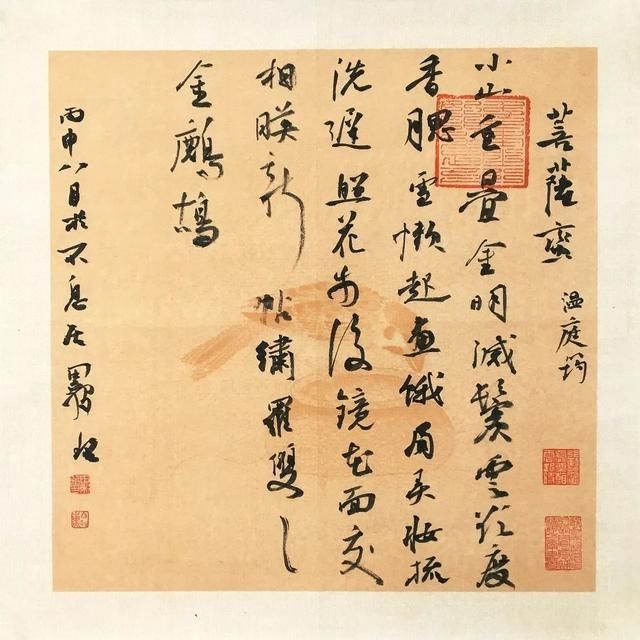 菩薩蠻 温庭筠
小山重疊金明滅鬢雲欲度
香腮雪懶起畫蛾眉弄妝梳
洗遲照花前後鏡花面交
相暎新帖繡羅雙〻
金鷓鴣
丙申八月於不息居